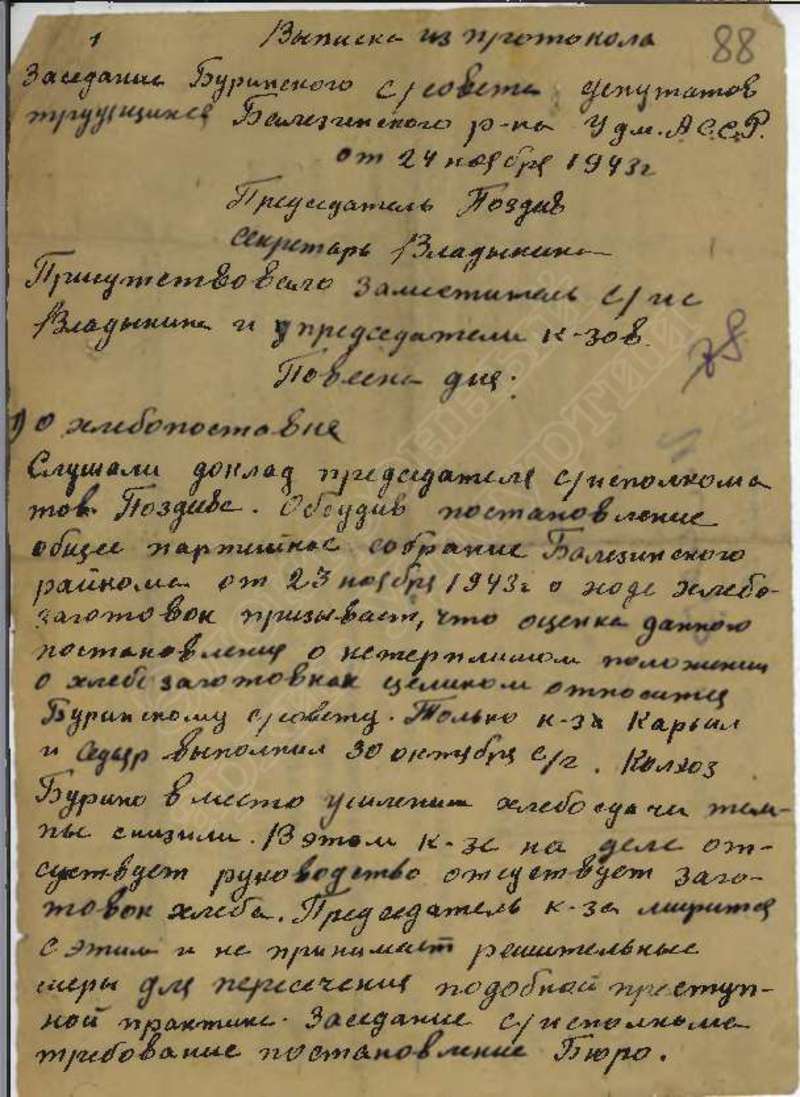 1 Выписка из протокола 88
Заседание Буринского с/совета депутатов
трудящихся Балезинского р-на Удм. АССР.
от 24 ноября 1943г
Председатель Поздев
Секретарь Владыкина
Присутствовало заместитель с/ис
Владыкина и председатели к-зов.
Повеска дня:
1) О хлебопоставке
Слушали доклад председателя с/исполкома
тов. Поздева. Обсудив постановление
общее партийное собрание Балезинского
райкома от 23 ноября 1943г о ходе хлебо-
заготовок призывает, что оценка данного
постановления о нетерплимом положении
о хлебозаготовках целиком относится
Буринскому с/совету. Только к-за Карыил
и выполнил 30 октября с/г. Колхоз
Бурино вместо усиления хлебосдачи тем-
пы снизили. В этом к-зе на деле от-
суствует руководство отсуствует заго-
товок хлеба. Председатель к-за мирится
с этим и не принимает решительные
меры для пересечения подобной преступ-
ной практике. Заседание с/исполкома
требование постановление Бюро.